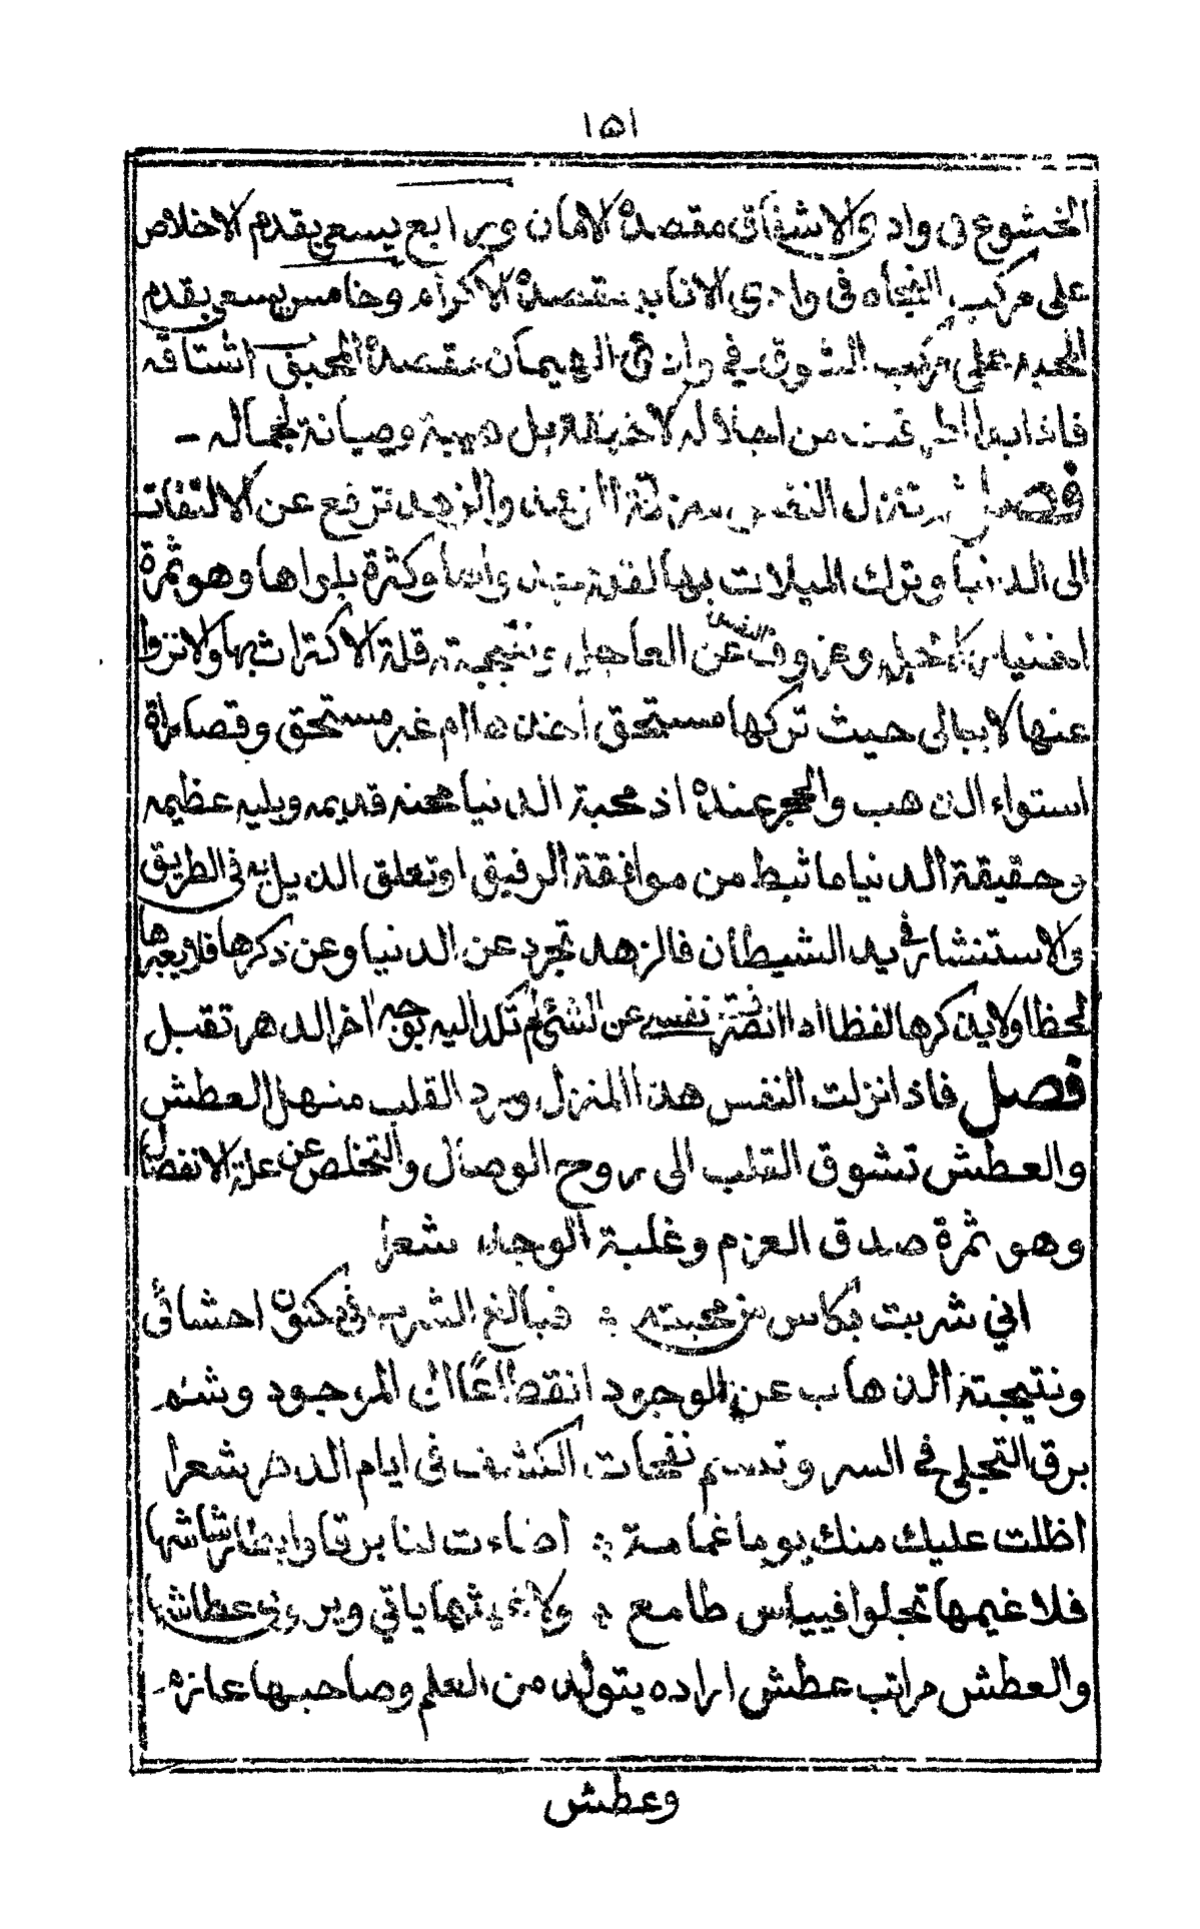 ١٥١
الخشوع فى وادى الاشفاق مقصده الامان ورابع يسعى بقدم الاخلاص
على مركب النجاه فى وادى الانابه مقصده الاكرام وخامس يسعى بقدم
المحبه على مركب الشوق فى وادى الهيمان مقصده المحبنى اشتاقه
فاذا بدا اطرقت من اجلاله لا خيفة بل هيبة وصيانة لجماله
فصل ثم تنزل النفس منزلة الزهد والزهد ترفع عن الالتفات
الى الدنيا وترك الميلات بها لقلة وكثرة بلواها وهو ثمرة
وعزوف النفس عن العاجل ونتيجته قلة الاكتراث بها والانزوا
عنها لا يبالى حيث تركها مستحق اخذها ام غير مستحق وقصاراة
استواء الذهب والحجر عنده اذ محبة الدنيا محنه قديمه وبليه عظيمه
وحقيقة الدنيا ما ثبط من موافقة الرفيق او تعلق الذيل به فى الطريق
فى الاستنشار فى يد الشيطان فالزهد تجرد عن الدنيا وعن ذكرها فلا يعبرها
لحظا ولا يذكرها لفظا اذا انصرفت نفسى عن الشئ لم تكد اليه بوجه اخر الدهر تقبل
فصل فاذا نزلت النفس هذا المنزل ورد القلب منهل العطش
والعطش تشوق القلب الى روح الوصال والتخلص عن علة الانفصال
وهو ثمرة صدق العزم وغلبة الوجد شعرا
اني شربت بكاس من محبته ؞ فبالغ الشرب فى مكنون احشائى
ونتيجته الذهاب عن الوجود انقطاعًا الى الموجود وشم
برق التجلى فى السر وتنسم نفحات الكشف فى ايام الدهر شعرا
اظلت عليك منك يوما غمامة ؞ اضاءت لنا برقا وابطا رشاشها
فلا غيمها تجلوا فيياس طامع ؞ ولا غيثها ياتي ويروى عطاشها
والعطش مراتب عطش اراده يتولد من العلم وصاحبها عازه
وعطش